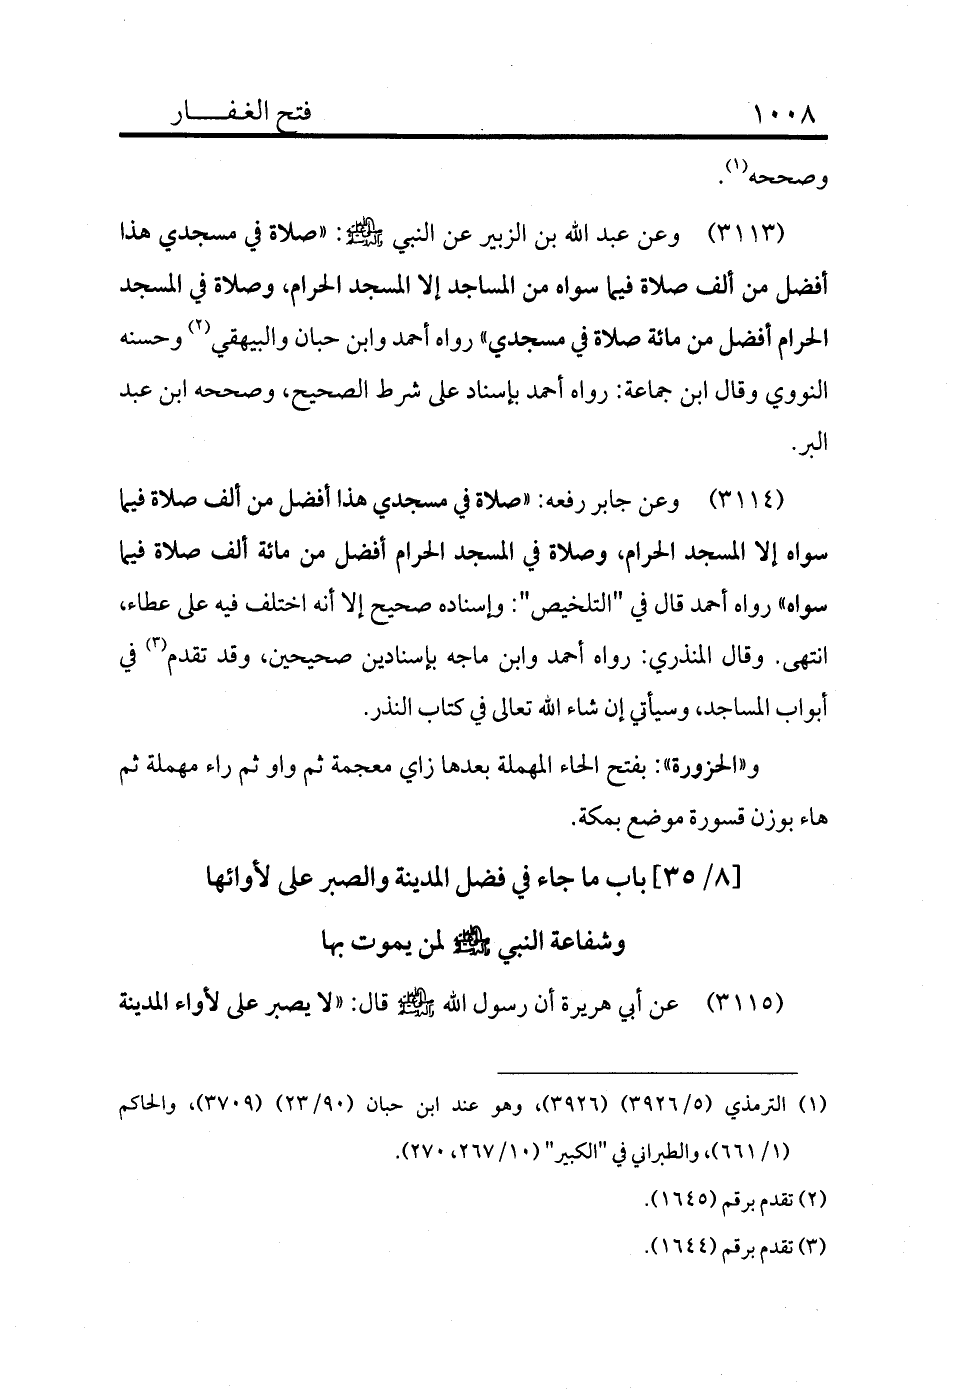 ١٠٠٨ فتح الغفـــــار
وصححه(١).
(٣١١٣) وعن عبد الله بن الزبير عن النبي ﷺ: «صلاة في مسجدي هذا
أفضل من ألف صلاة فيما سواه من المساجد إلا المسجد الحرام، وصلاة في المسجد
الحرام أفضل من مائة صلاة في مسجدي» رواه أحمد وابن حبان والبيهقي(٢) وحسنه
النووي وقال ابن جماعة: رواه أحمد بإسناد على شرط الصحيح، وصححه ابن عبد
البر.
(٣١١٤) وعن جابر رفعه: «صلاة في مسجدي هذا أفضل من ألف صلاة فيما
سواه إلا المسجد الحرام، وصلاة في المسجد الحرام أفضل من مائة ألف صلاة فيما
سواه» رواه أحمد قال في "التلخيص": وإسناده صحيح إلا أنه اختلف فيه على عطاء،
انتهى. وقال المنذري: رواه أحمد وابن ماجه بإسنادين صحيحين، وقد تقدم(٣) في
أبواب المساجد، وسيأتي إن شاء الله تعالى في كتاب النذر.
و«الحزورة»: بفتح الحاء المهملة بعدها زاي معجمة ثم واو ثم راء مهملة ثم
هاء بوزن قسورة موضع بمكة.
[٨/ ٣٥] باب ما جاء في فضل المدينة والصبر على لأوائها
وشفاعة النبي ﷺ لمن يموت بها
(٣١١٥) عن أبي هريرة أن رسول الله ﷺ قال: «لا يصبر على لأواء المدينة
(١) الترمذي (٥/ ٣٩٢٦) (٣٩٢٦)، وهو عند ابن حبان (٩٠/ ٢٣) (٣٧٠٩)، والحاكم
(١/ ٦٦١)، والطبراني في "الكبير" (١٠/ ٢٦٧، ٢٧٠).
(٢) تقدم برقم (١٦٤٥).
(٣) تقدم برقم (١٦٤٤).